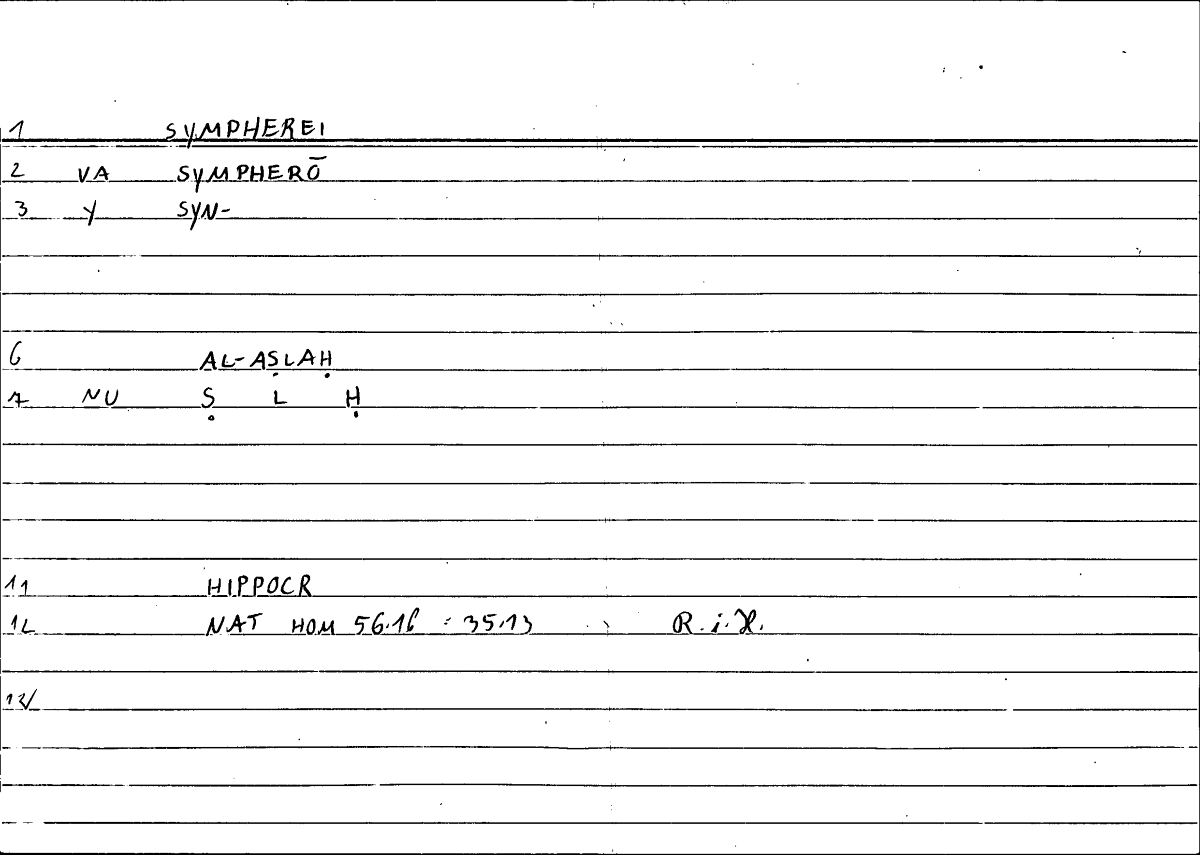 1 SYMPHEREI
2 VA SYMPHERŌ
3 Y SYN-
6 AL-AṢLAḤ
7 NU Ṣ L Ḥ
11 HIPPOCR
12 NAT HOM 56.16 : 35.13 R. i. H.